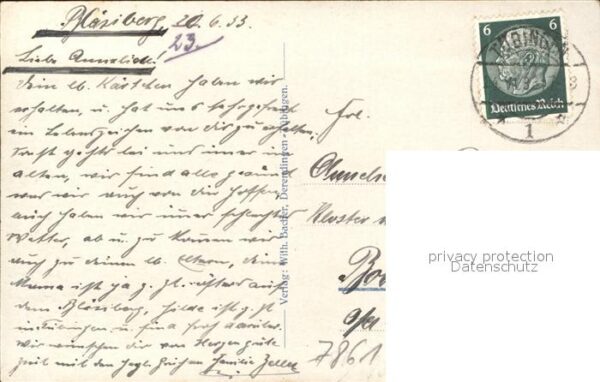 Bläsiberg, 20.6.33.
23.
Liebe Anneliese!
Dein lb. Kärtchen haben wir
erhalten, u. hat uns sehr gefreut
ein Lebenszeichen von dir zu erhalten.
geht's bei uns immer im
alten, wir sind alle gesund
was wir auch von dir hoffen,
auch haben wir immer schlechtes
Wetter, ab u. zu kommen wir
auch zu deinen lb. Eltern, deine
Mama ist ja z. Zt. öfters auf
dem Bläsiberg, Hilde ist z. Zt.
in Tübingen u. sind froh darüber.
Wir wünschen dir von Herzen gute
Zeit mit den herzl. Familie Zeller
Verlag: Wilh. Bader, Derendingen-Tübingen.
Frl.
Kloster
7861
6 6
Deutsches Reich
TÜBINGEN
1
privacy protection
Datenschutz